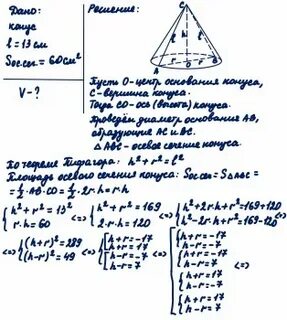 Дано:
конус
l = 13 см
Sос.сеч. = 60 см²
V - ?
Решение:
C
h
l
A
r
O
r
B
Пусть O-центр основания конуса,
C-вершина конуса.
Тогда CO-ось (высота) конуса.
Проведём диаметр основания AB,
образующие AC и BC.
△ABC-осевое сечение конуса.
По теореме Пифагора: h² + r² = l²
Площадь осевого сечения конуса: Sос.сеч = S△ABC =
= ½·AB·CO = ½·2r·h = rh
{h² + r² = 13² <=> {h² + r² = 169 <=> {h² + 2rh + r² = 169 + 120 <=>
{r·h = 60 {2·r·h = 120 {h² - 2r·h + r² = 169 - 120
<=> {(h+r)² = 289 <=> [{h+r = -17 <=> [{h+r = -17 <=>
{(h-r)² = 49 {h+r = 17 {h-r = -7
{h-r = -7 {h+r = -17
{h-r = 7 {h-r = 7
{h+r = 17
{h-r = -7
{h+r = 17
{h-r = 7